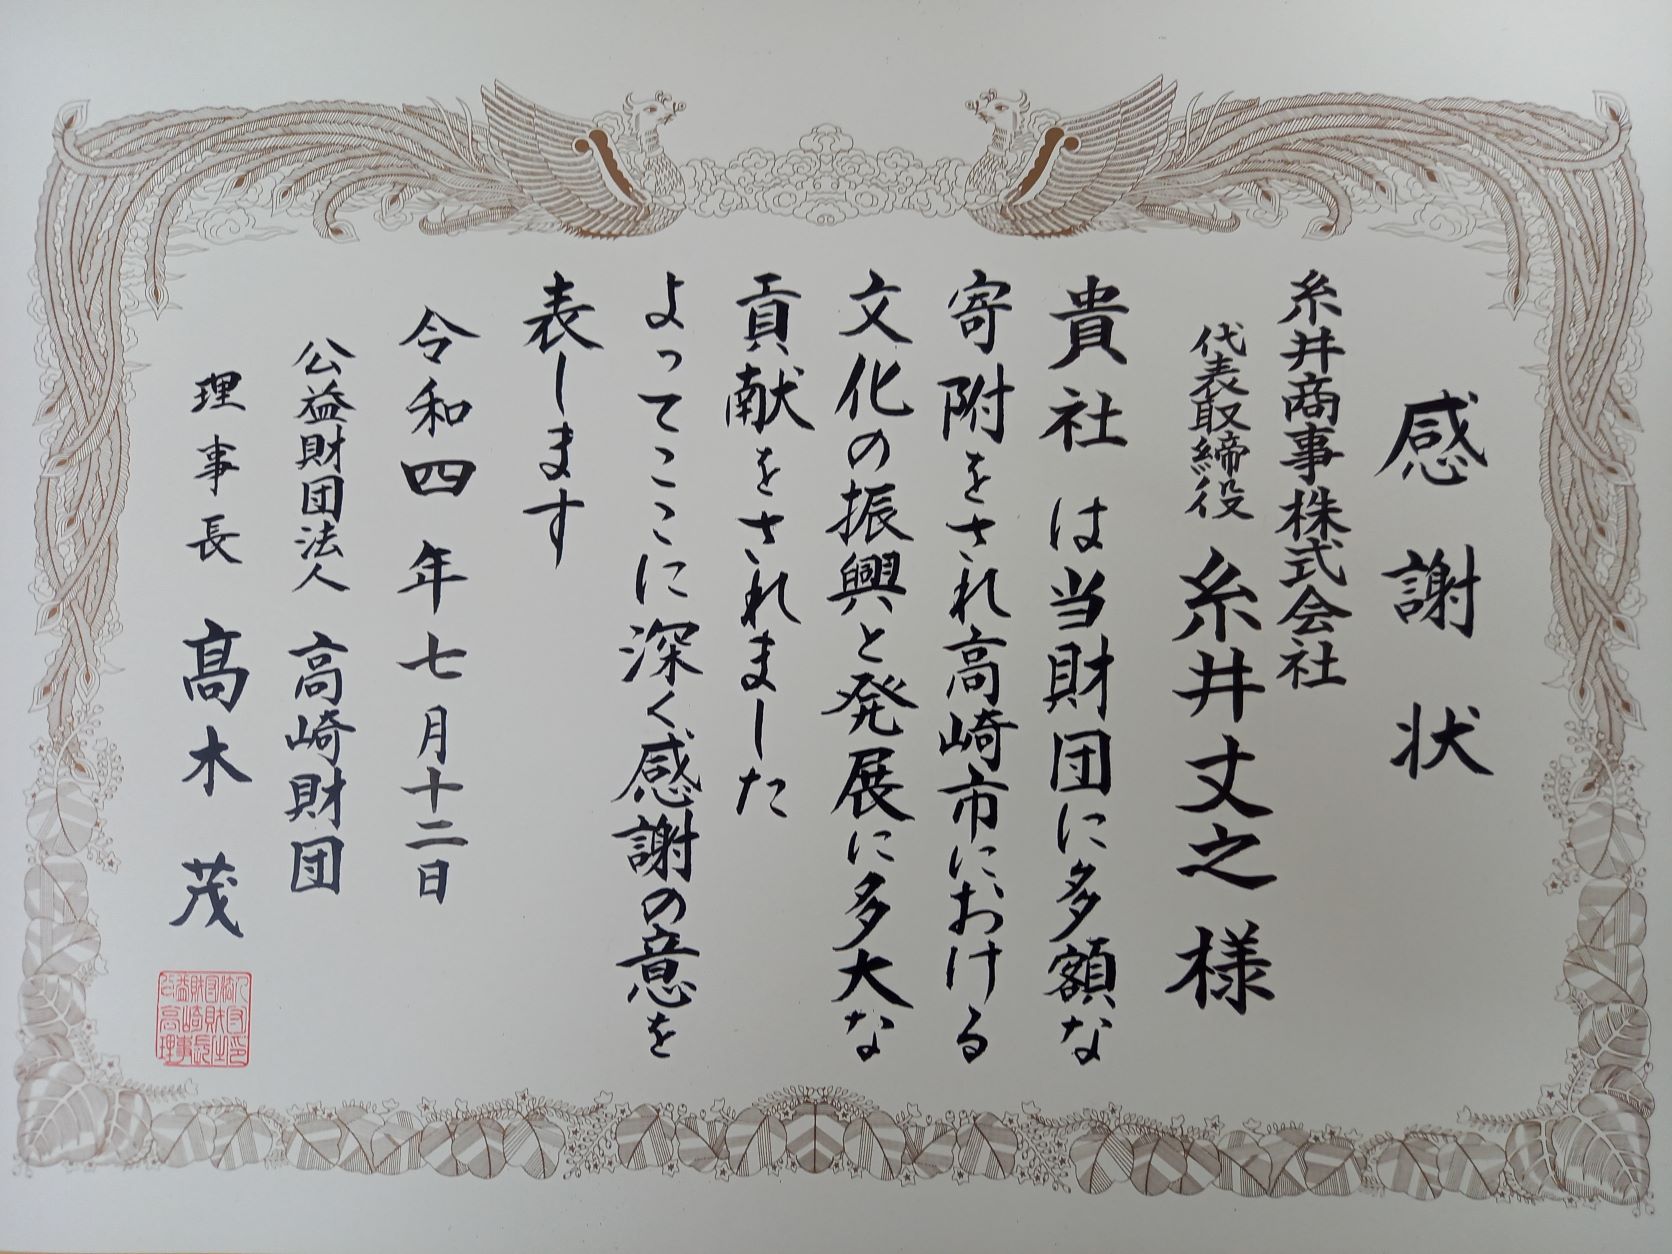 感謝状
糸井商事株式会社
代表取締役 糸井丈之様
貴社は当財団に多額な
寄附をされ高崎市における
文化の振興と発展に多大な
貢献をされました
よってここに深く感謝の意を
表します
令和四年七月十二日
公益財団法人 高崎財団
理事長 髙木茂